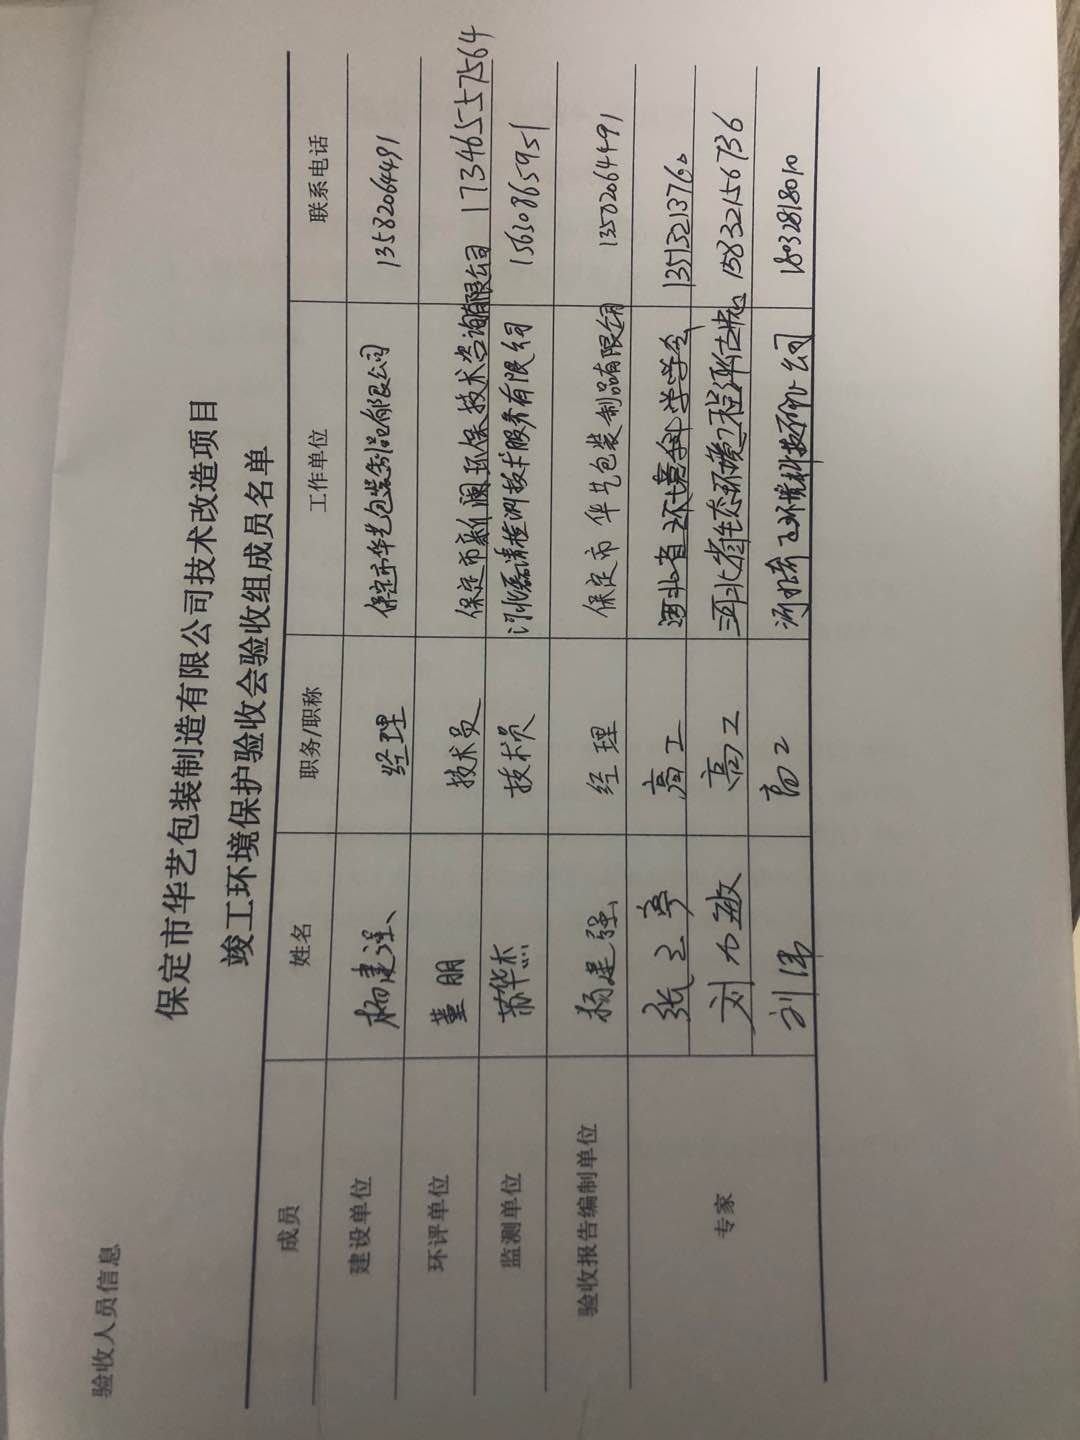 验收人员信息
保定市华艺包装制造有限公司技术改造项目
竣工环境保护验收会验收组成员名单
成员 姓名 职务/职称 工作单位 联系电话
建设单位 杨建强 经理 保定市华艺包装制品有限公司 13582064491
环评单位 董朋 技术员 保定市新澜环保技术咨询有限公司 17346557564
监测单位 苏华杰 技术员 河北磊清检测技术服务有限公司 15630865951
验收报告编制单位 杨建强 经理 保定市华艺包装制品有限公司 13582064491
专家
张 高工 河北省环境科学学会 13513213760
刘 敏 高工 河北省生态环境工程评估中心 15832156736
刘伟 高工 河北 环境科技有限公司 18032818010